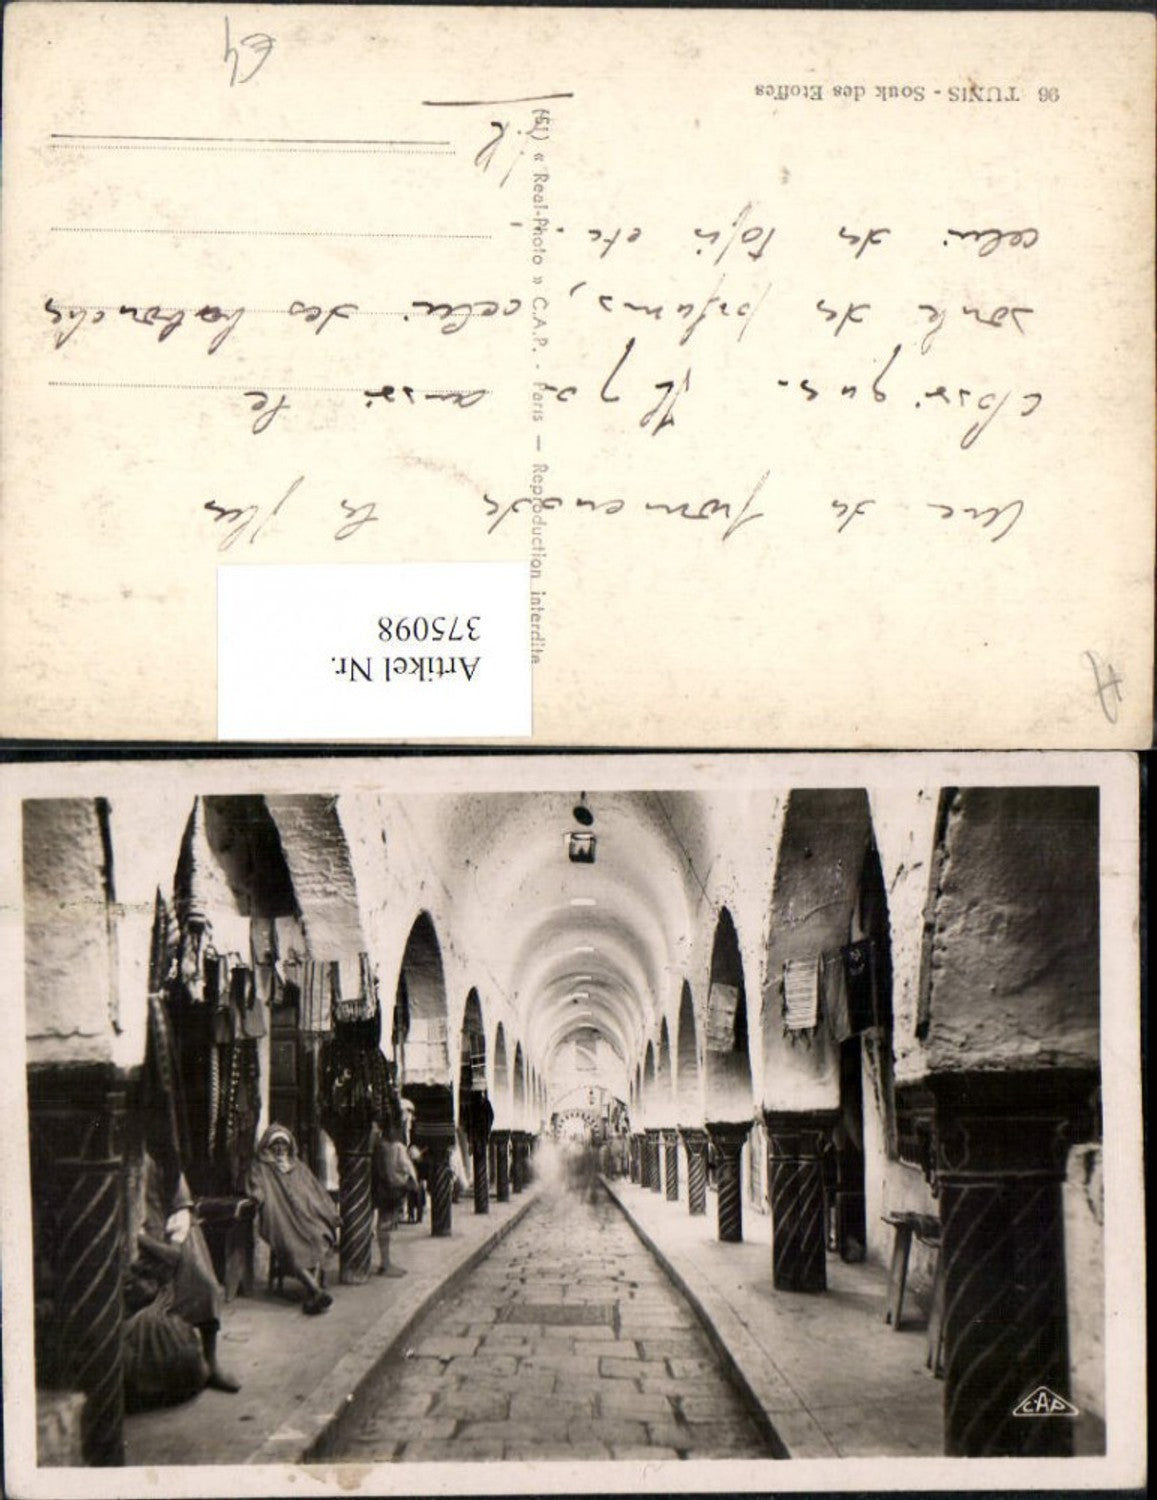 96 TUNIS - Souk des Etoffes
Une des promenades les plus
classiques. Il y a aussi le
souk des parfums, celui des babouches
celui des tapis etc.
(51) « Real-Photo » C.A.P. - Paris — Reproduction interdite
Artikel Nr.
375098
CAP